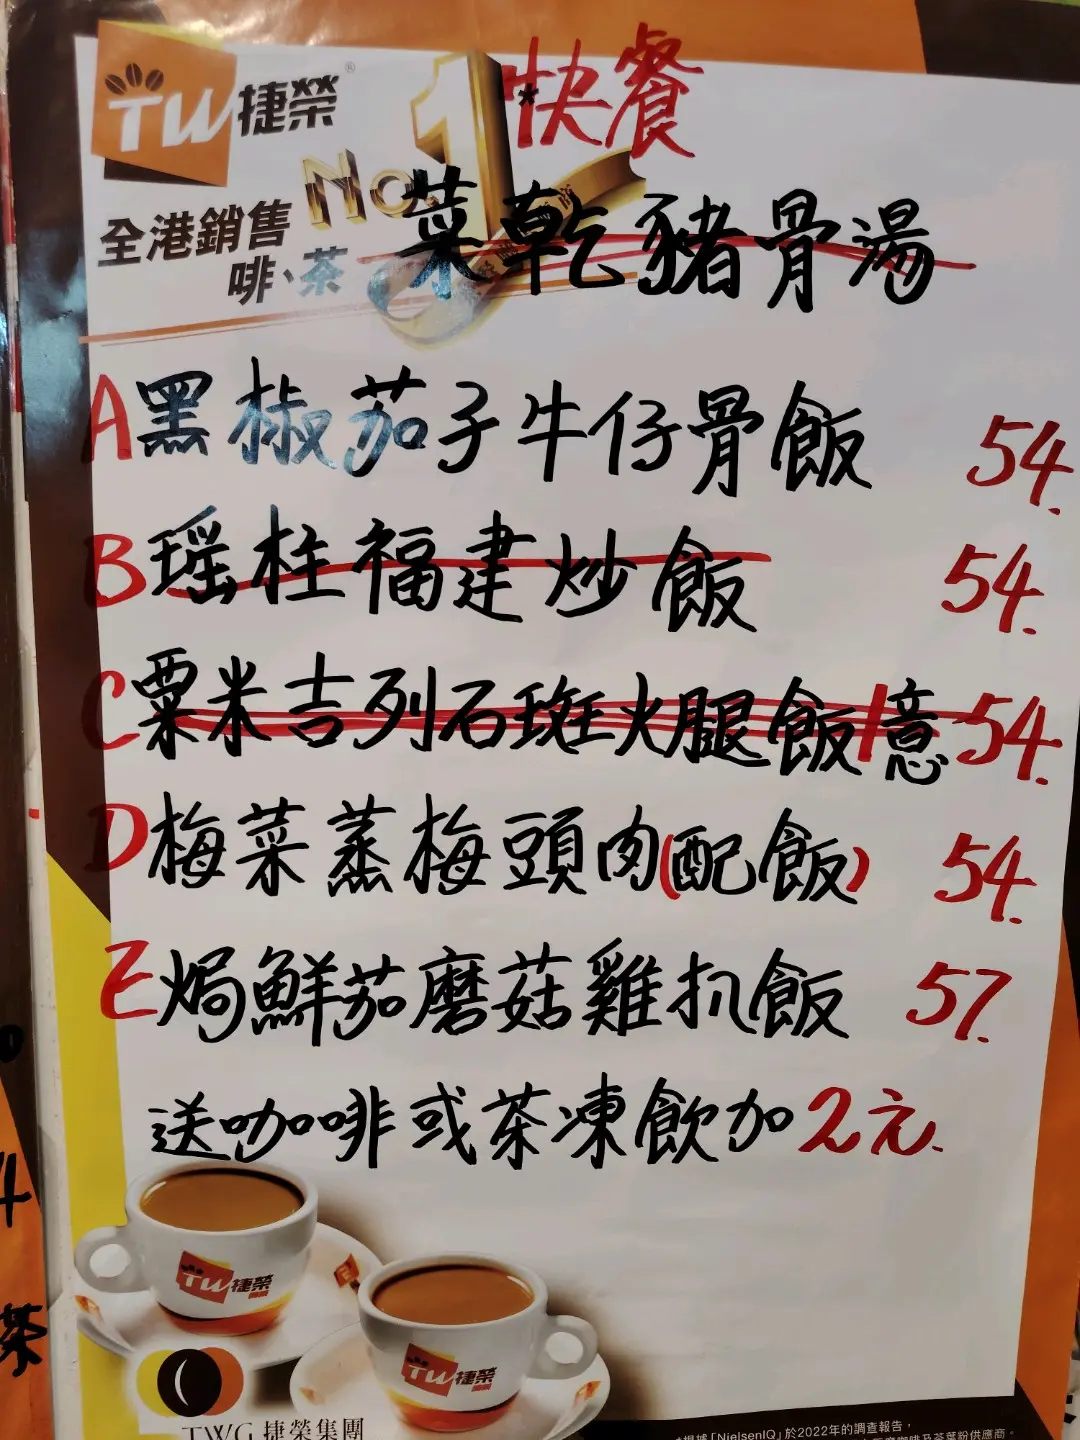 TW捷榮®
No.1
*
快餐
全港銷售
啡、茶
菜乾豬骨湯
A黑椒茄子牛仔骨飯 54.
B瑤柱福建炒飯 54.
C粟米吉列石斑火腿飯/意 54.
D梅菜蒸梅頭肉(配飯) 54.
E焗鮮茄磨菇雞扒飯 57.
送咖啡或茶凍飲加2元.
TW捷榮
TW捷榮
TWG 捷榮集團
*根據「NielsenIQ」於2022年的調查報告，
咖啡及茶葉粉供應商。
茶